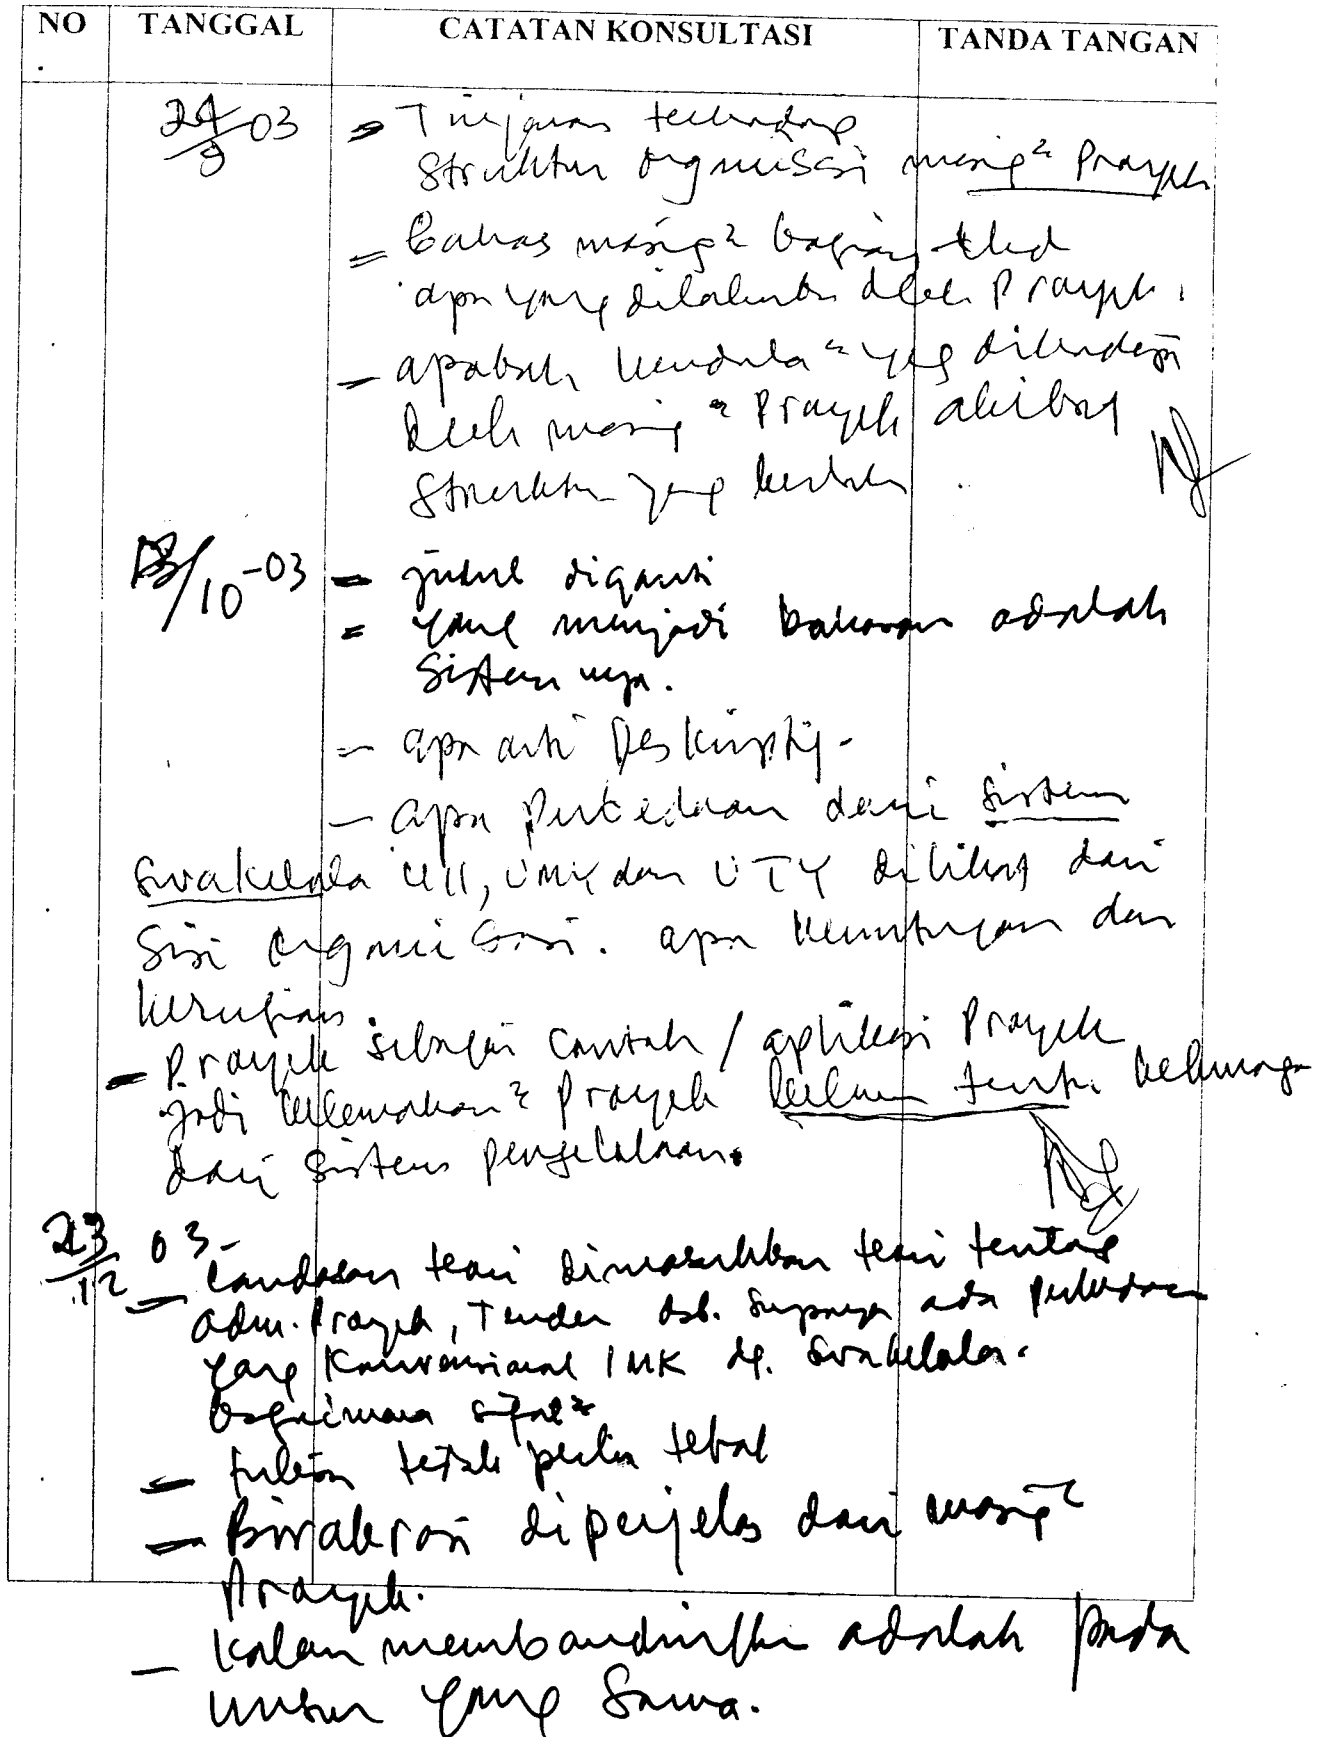 NO TANGGAL CATATAN KONSULTASI TANDA TANGAN
24/9 03 - Tinjauan terhadap
Struktur Organisasi masing² Proyek
= Bahas masing² bagian thd
apa yang dilakukan oleh Proyek.
- apakah kendala² yg dihadapi
Oleh masing² Proyek akibat
Struktur yang berlaku.
13/10-03 - judul diganti
= yang menjadi bahasan adalah
Sistemnya.
- apa arti Deskriptif.
- apa Perbedaan dari Sistem
Swakelola UII, UMY dan UTY dilihat dari
Sisi Organisasi. apa keuntungan dan
kerugian.
- Proyek sebagai Contoh / aplikasi Proyek
jadi kelemahan² Proyek belum tentu kelemahan
dari Sistem pengelolaan.
23/12 03 -
- Landasan teori dimasukkan teori tentang
adm. Proyek, Tender dsb. Supaya ada perbedaan
yang Konvensional dg. Swakelola.
bagaimana sifat²
- tulisan tidak perlu tebal
- Birokrasi diperjelas dari masing²
Proyek.
- Kalau membandingkan adalah pada
Unsur yang Sama.